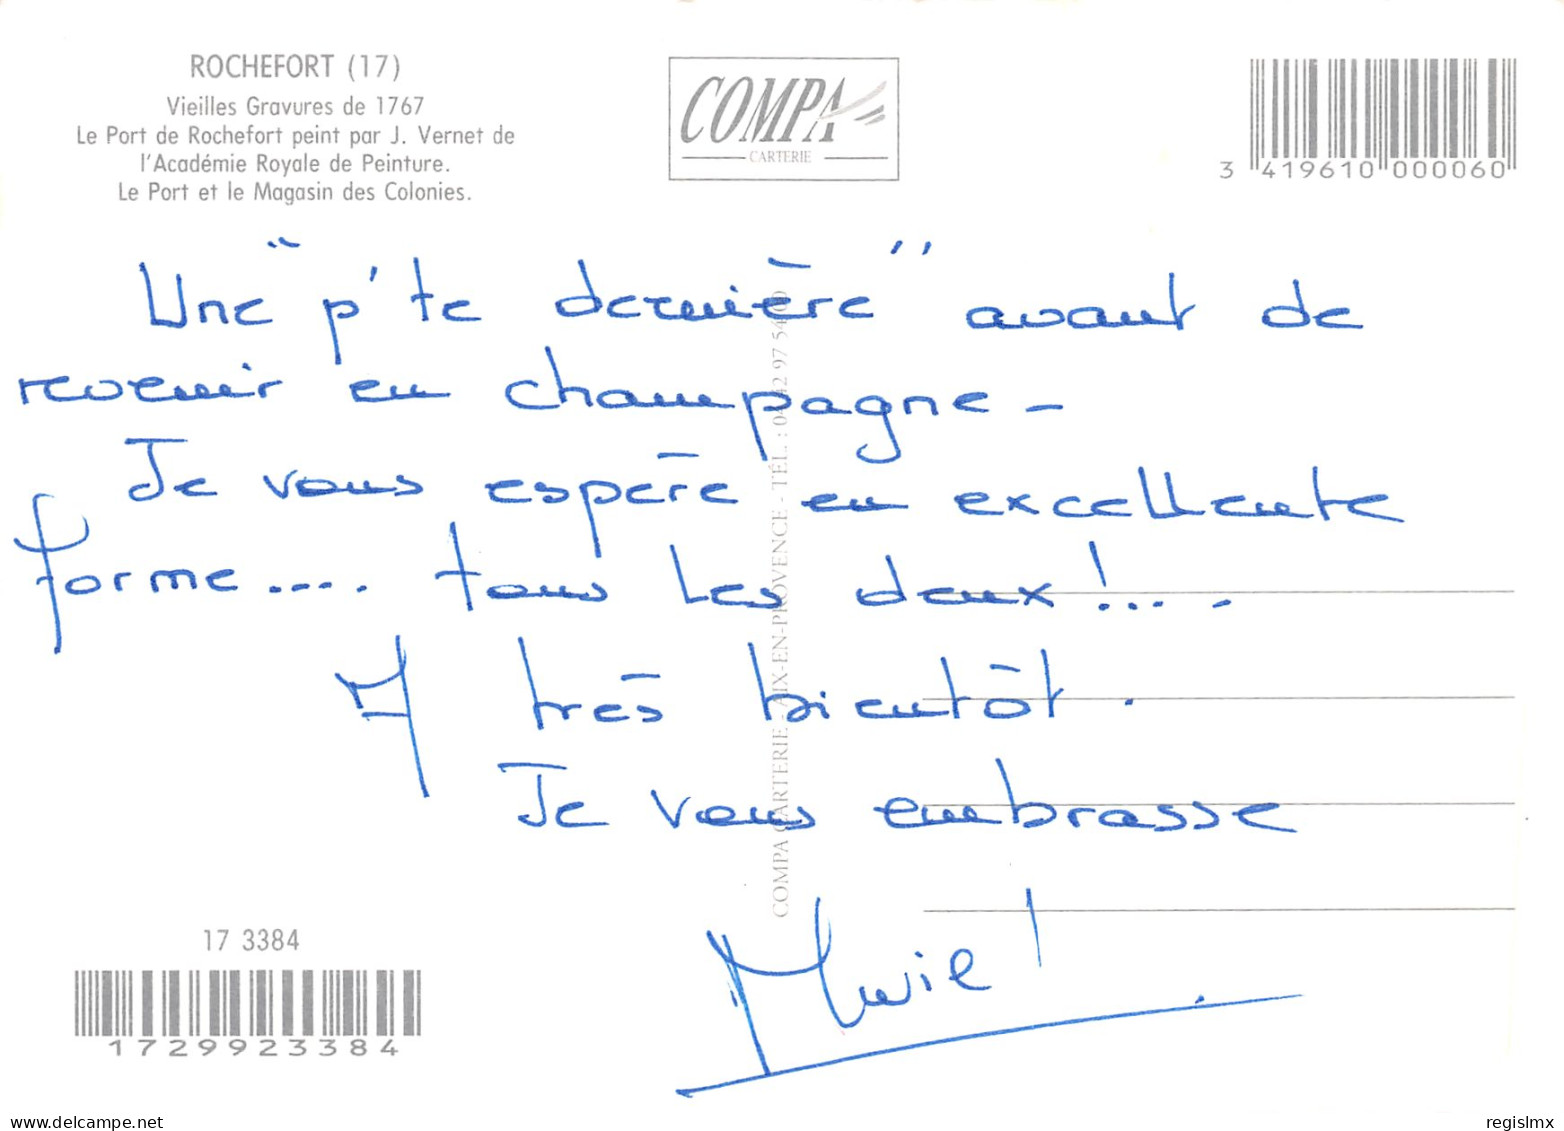 ROCHEFORT (17)
Vieilles Gravures de 1767
Le Port de Rochefort peint par J. Vernet de
l'Académie Royale de Peinture.
Le Port et le Magasin des Colonies.
COMPA
CARTERIE
3 419610 000060
Une "p'te dernière" avant de
revenir en champagne -
Je vous espère en excellente
forme .... tous les deux !... .
A très bientôt.
Je vous embrasse
COMPA CARTERIE - AIX-EN-PROVENCE - TÉL. : 97 54
17 3384
1729923384
www.delcampe.net
regislmx